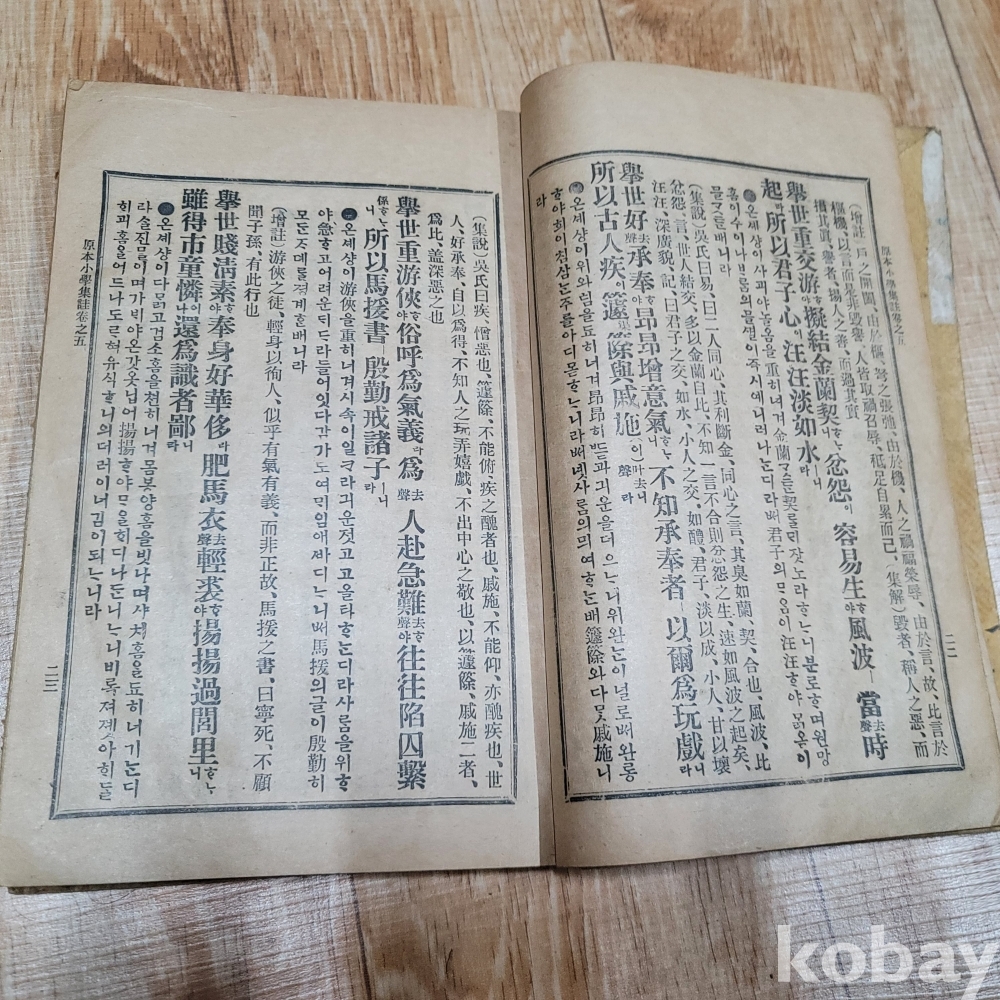 原本小學集註卷之五
二二
(增註)戶之開闔、由於樞、弩之張弛、由於機、人之禍福榮辱、由於言、故、比言於
樞機、以言而是非毀譽、人皆取禍召辱、秪足自累而已、(集解)毀者、稱人之惡、而
損其眞、譽者、揚人之善、而過其實
擧世重交游ᄒᆞ야擬結金蘭契ᄒᆞᄂᆞ니忿怨이容易生ᄒᆞ야風波ㅣ當去聲時
起라所以君子心汪汪淡如水ㅣ니라
●온셰샹이사괴야놀옴을重히너겨金蘭ᄀᆞᄐᆞᆫ契ᄅᆞᆯᄆᆡᆺ노라ᄒᆞᄂᆞ니분로ᄒᆞ며원망
홈이수이나ᄇᆞᄅᆞᆷ의믈결이즉시예니러나ᄂᆞᆫ디라ᄡᅥ君子의ᄆᆞᄋᆞᆷ이汪汪ᄒᆞ야ᄆᆞᆰ옴이
믈ᄀᆞᄐᆞᆫ배니라
(集說)吳氏曰易、曰二人同心、其利斷金、同心之言、其臭如蘭、契、合也、風波、比
忿怨、言、世人結交、多以金蘭自比、不知一言不合則忿怨之生、速如風波之起矣、
汪汪、深廣貌、記、曰君子之交、如水、小人之交、如醴、君子、淡以成、小人、甘以壞
擧世好去聲承奉ᄒᆞ야昂昂增意氣ᄒᆞᄂᆞ니不知承奉者ㅣ以爾爲玩戲니라
所以古人疾이籧篨與戚施니라
●온셰샹이위와텸을됴히너겨昂昂히ᄠᅳᆮ과긔운을더으ᄂᆞ니위완ᄂᆞᆫ이널로ᄡᅥ완롱
ᄒᆞ야희이침삼ᄂᆞᆫ주를아디몯ᄒᆞᄂᆞ니라ᄡᅥ녯사ᄅᆞᆷ의믜여ᄒᆞᄂᆞᆫ배籧篨와다ᄆᆞᆺ戚施니
라
(集說)吳氏曰疾、憎惡也、籧篨、不能俯、疾之醜者也、戚施、不能仰、亦醜疾也、世
人、好承奉、自以爲得、不知人之玩弄嬉戲、不出中心之敬也、以籧篨、戚施二者、
爲比、盖深惡之也
擧世重游俠ᄒᆞ야俗呼爲氣義라爲去聲人赴急難去聲ᄒᆞ야往往陷囚繫
係ᄒᆞᄂᆞ니所以馬援書ㅣ殷勤戒諸子ㅣ니라
●온셰샹이游俠을重히너겨시속이일ᄏᆞ라긔운젓고올타ᄒᆞᄂᆞᆫ디라사ᄅᆞᆷ을위ᄒᆞ
야急ᄒᆞ고어려운ᄃᆡᄃᆞ라들어잇다감가도여ᄆᆡ임애ᄲᅡ디ᄂᆞ니ᄡᅥ馬援의글이殷勤히
모ᄃᆞᆫᄌᆞ뎨ᄅᆞᆯ경계ᄒᆞᆫ배니라
(增註)游俠之徒、輕身以徇人、似乎有氣有義、而非正故、馬援之書、曰寧死、不願
聞子孫、有此行也
擧世賤淸素ᄒᆞ야奉身好華侈라肥馬衣去聲輕裘ᄒᆞ야揚揚過閭里ᄒᆞᄂᆞ니
雖得市童憐이나還爲識者鄙니라
●온셰샹이다ᄆᆞᆰ고검소홈을쳔히너겨몸봉양홈을빗나며샤치홈을됴히너기ᄂᆞᆫ디
라ᄉᆞᆯ진ᄆᆞᆯ이며가ᄇᆡ야온갓옷닙어揚揚ᄒᆞ야ᄆᆞᄋᆞᆯ희디나ᄂᆞ니비록져제ㅅ아ᄒᆡᄃᆞᆯ
희긔홈을어드나도ᄅᆞ혀유식ᄒᆞ니의더러이너김이되ᄂᆞ니라
原本小學集註卷之五
二三
kobay